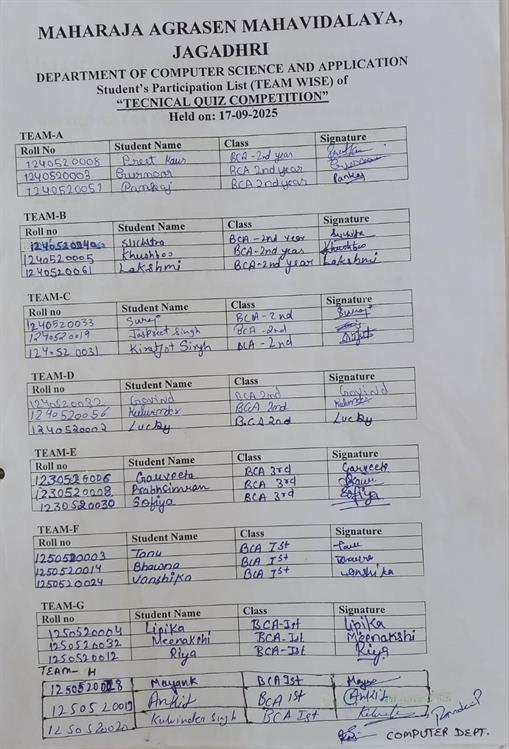 MAHARAJA AGRASEN MAHAVIDALAYA,
JAGADHRI
DEPARTMENT OF COMPUTER SCIENCE AND APPLICATION
Student's Participation List (TEAM WISE) of
"TECNICAL QUIZ COMPETITION"
Held on: 17-09-2025
TEAM-A
Roll No Student Name Class Signature
1240520008 Preet Kaur BCA-2nd year
1240520003 Gurnoor BCA 2nd year
1240520057 Pankaj BCA 2nd year Pankaj
TEAM-B
Roll no Student Name Class Signature
Suchitra BCA-2nd year Suchitra
1240520005 Khushboo BCA-2nd year Khushboo
1240520061 Lakshmi BCA-2nd year Lakshmi
TEAM-C
Roll no Student Name Class Signature
1240520033 Suraj BCA-2nd Suraj
1240520019 Jaspreet Singh BCA-2nd
1240520031 Kiratjot Singh BCA-2nd
TEAM-D
Roll no Student Name Class Signature
1240520032 Govind BCA 2nd Govind
1240520056 Kulwinder BCA 2nd Kulwinder
1240520002 Lucky BCA 2nd Lucky
TEAM-E
Roll no Student Name Class Signature
1230525006 Garveeta BCA 3rd Garveeta
1230520008 Prabhsimran BCA 3rd
1230520030 Sofiya BCA 3rd Sofiya
TEAM-F
Roll no Student Name Class Signature
1250520003 Tanu BCA Ist Tanu
1250520014 Bhawna BCA Ist Bhawna
1250520024 Vanshika BCA Ist Vanshika
TEAM-G
Roll no Student Name Class Signature
1250520004 Lipika BCA-Ist Lipika
1250520032 Meenakshi BCA-Ist Meenakshi
1250520012 Riya BCA-Ist Riya
TEAM- H
1250520028 Mayank BCA Ist Mayank
1250520019 Ankit BCA Ist Ankit
1250520020 Kulwinder Singh BCA Ist Kulwinder
COMPUTER DEPT.